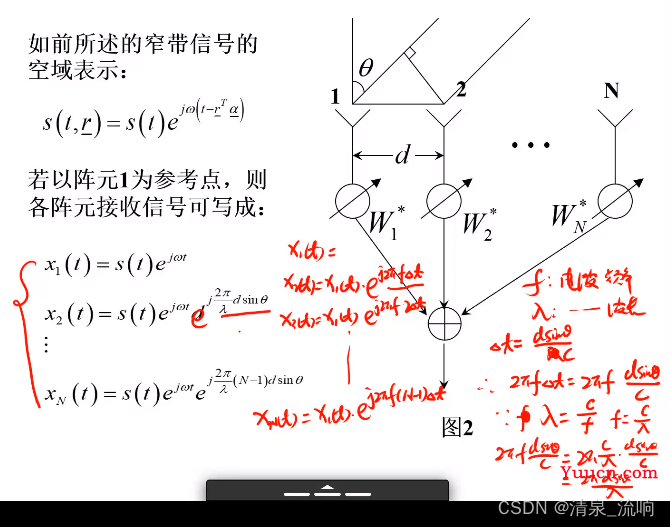 如前所述的窄带信号的
空域表示：
s(t,r)=s(t)e^{jω(t-r^T α)}
若以阵元1为参考点，则
各阵元接收信号可写成：
x_1(t)=s(t)e^{jωt}
x_2(t)=s(t)e^{jωt}e^{j\frac{2π}{λ}d sinθ}
⋮
x_N(t)=s(t)e^{jωt}e^{j\frac{2π}{λ}(N-1)d sinθ}
θ
1
2
N
d
...
W_1^*
W_2^*
W_N^*
图2
x_1(t)=
x_2(t)=x_1(t)·e^{j2πfΔt}
x_3(t)=x_1(t)·e^{j2πf2Δt}
x_N(t)=x_1(t)·e^{j2πf(N-1)Δt}
f:
λ:
Δt=\frac{dsinθ}{C}
∴ 2πfΔt=2πf\frac{dsinθ}{C}
∵ λ=\frac{C}{f} f=\frac{C}{λ}
2πf\frac{dsinθ}{C}=2π\frac{C}{λ}·\frac{dsinθ}{C}
=\frac{2πdsinθ}{λ}
Yuucn.com
CSDN @清泉_流响